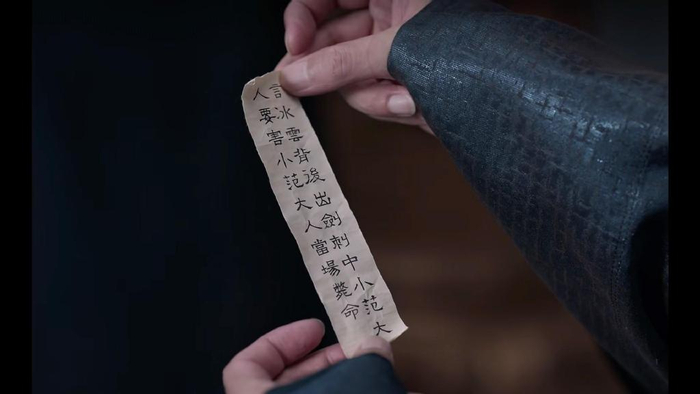 言冰雲背後出劍刺中小范大
人要害小范大人當場斃命